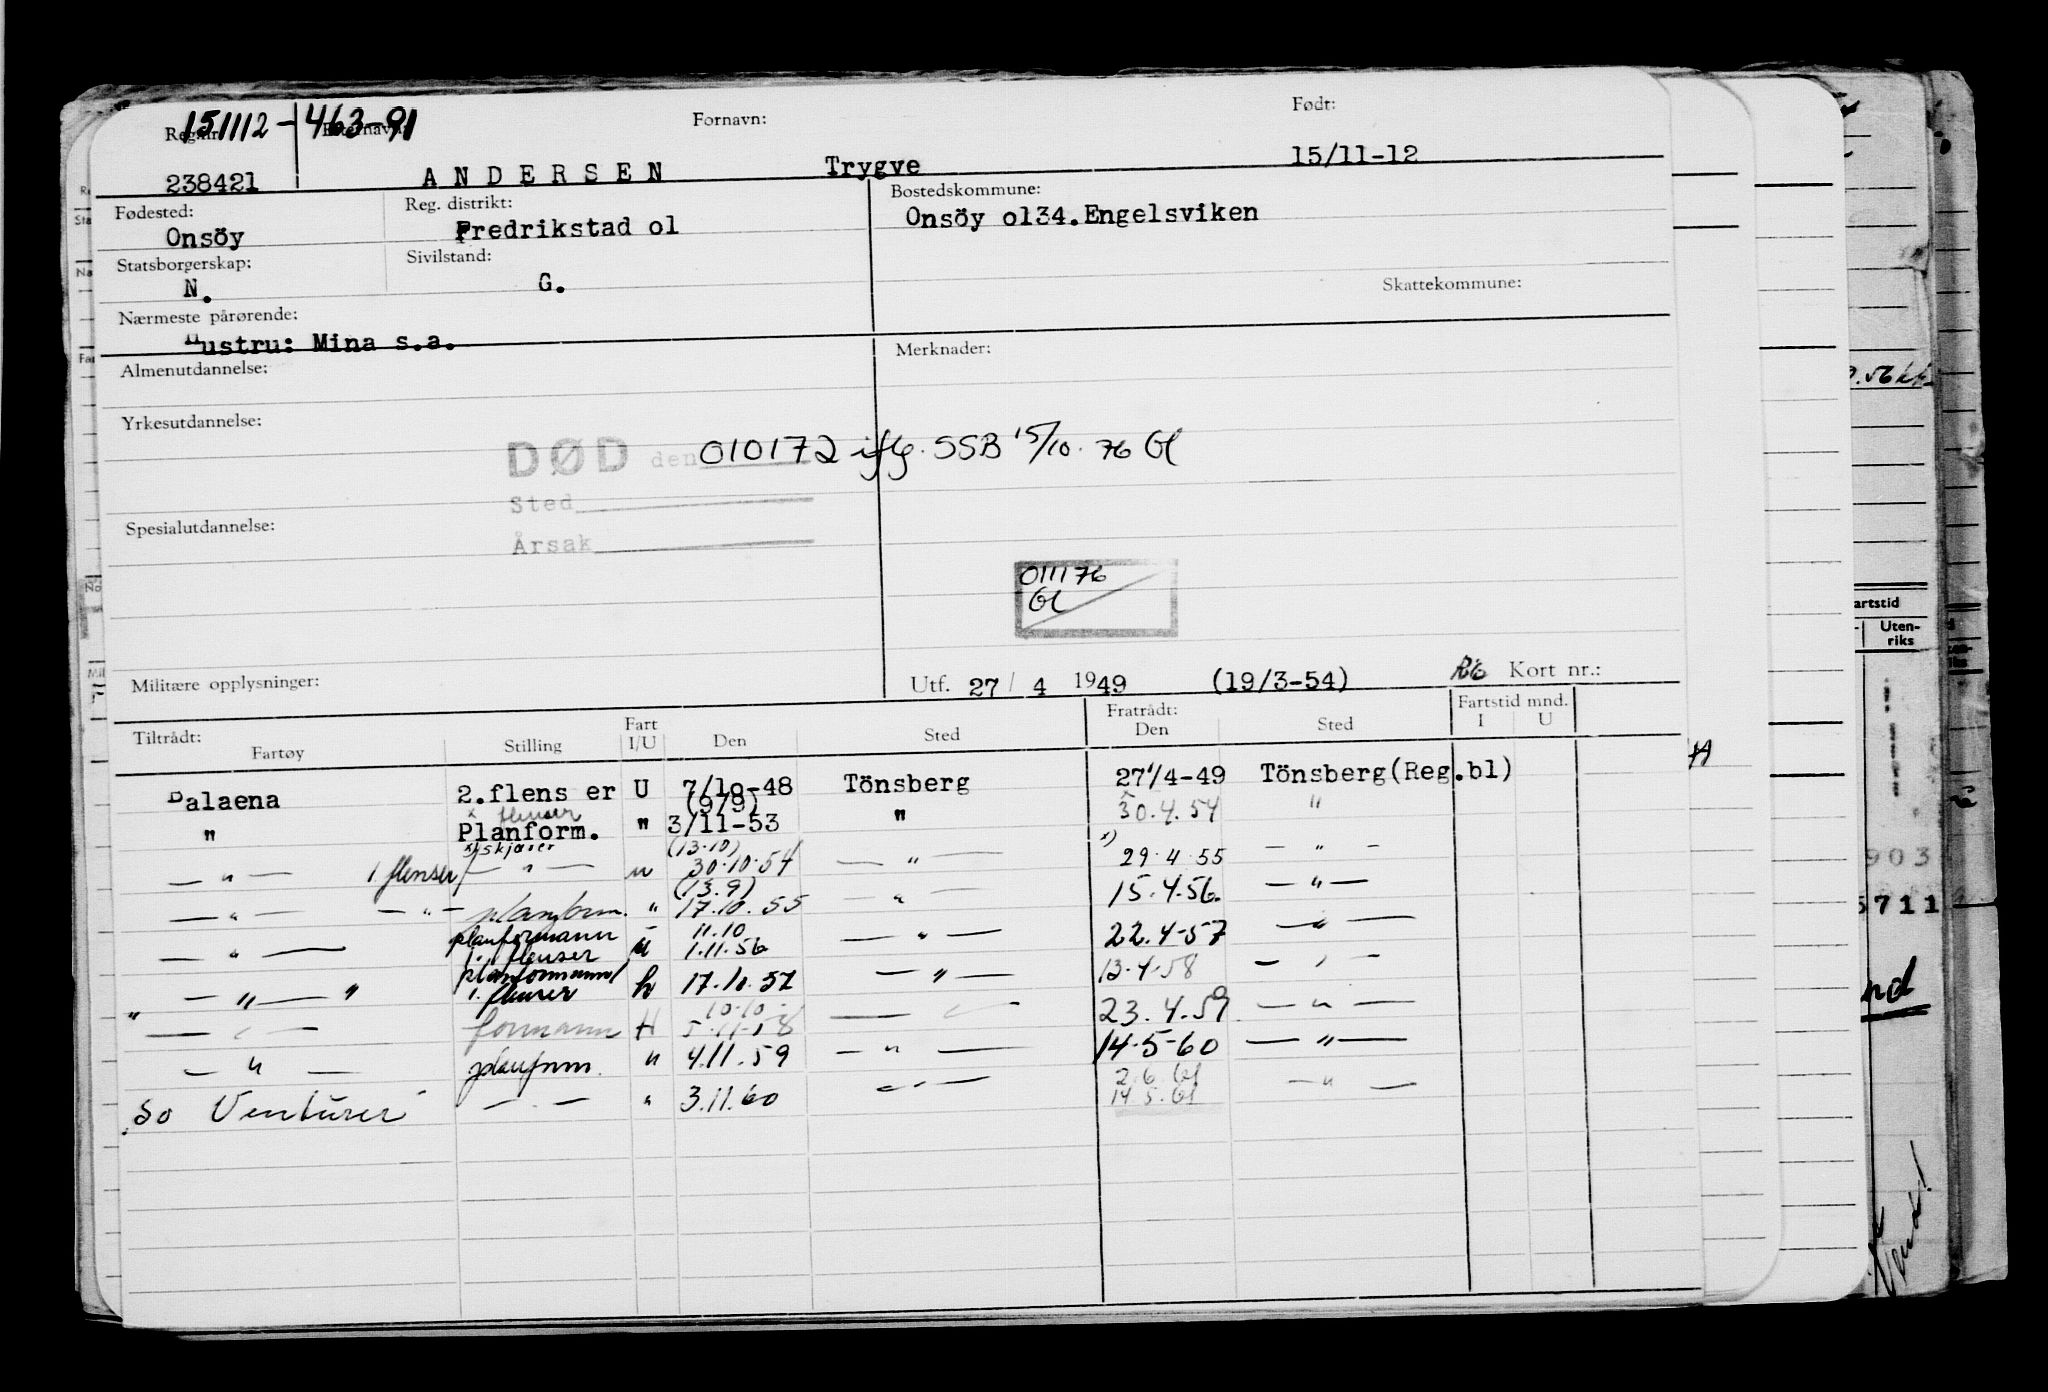 151112-463-91
Regnr. Etternavn: Fornavn: Født:
238421 ANDERSEN Trygve 15/11-12
Fødested: Reg. distrikt: Bostedskommune:
Onsöy Fredrikstad o1 Onsöy o134.Engelsviken
Statsborgerskap: Sivilstand:
N. G. Skattekommune:
Nærmeste pårørende:
Hustru: Mina s.a.
Almenutdannelse: Merknader:
Yrkesutdannelse:
DØD den 010172 iflg. SSB 15/10. 76 Gl
Sted
Årsak
Spesialutdannelse:
011176
Gl
Militære opplysninger: Utf. 27/ 4 1949 (19/3-54) Kort nr.:
Tiltrådt: Fratrådt: Fartstid mnd.
Fartøy Stilling Fart I/U Den Sted Den Sted I U
Balaena 2.flens er U 7/10-48 Tönsberg 27/4-49 Tönsberg(Reg.bl)
x flenser (9/9)
" Planform. " 3/11-53 " 30.4.54 "
x) skjærer (13.10) x)
— " — 1. flenser/ — " — u 30.10.54 — " — 29.4.55 — " —
(13.9)
— " — — " — planform. " 17.10.55 — " — 15.4.56. — " —
planformann 11.10
— " — 1. flenser u 1.11.56 — " — 22.4-57 — " —
planformann/
— " — " 1. flenser h 17.10.57 — " — 13.4.58 — " —
10.10
" — " — formann H 5.11.58 — " — 23.4.59 — " —
— " — planfrm. " 4.11.59 — " — 14-5-60 — " —
2.6.61
So Venturer — " — " 3.11.60 — " — 14.5.61 — " —
0.56
artstid
Uten-
riks
903
5711
nd